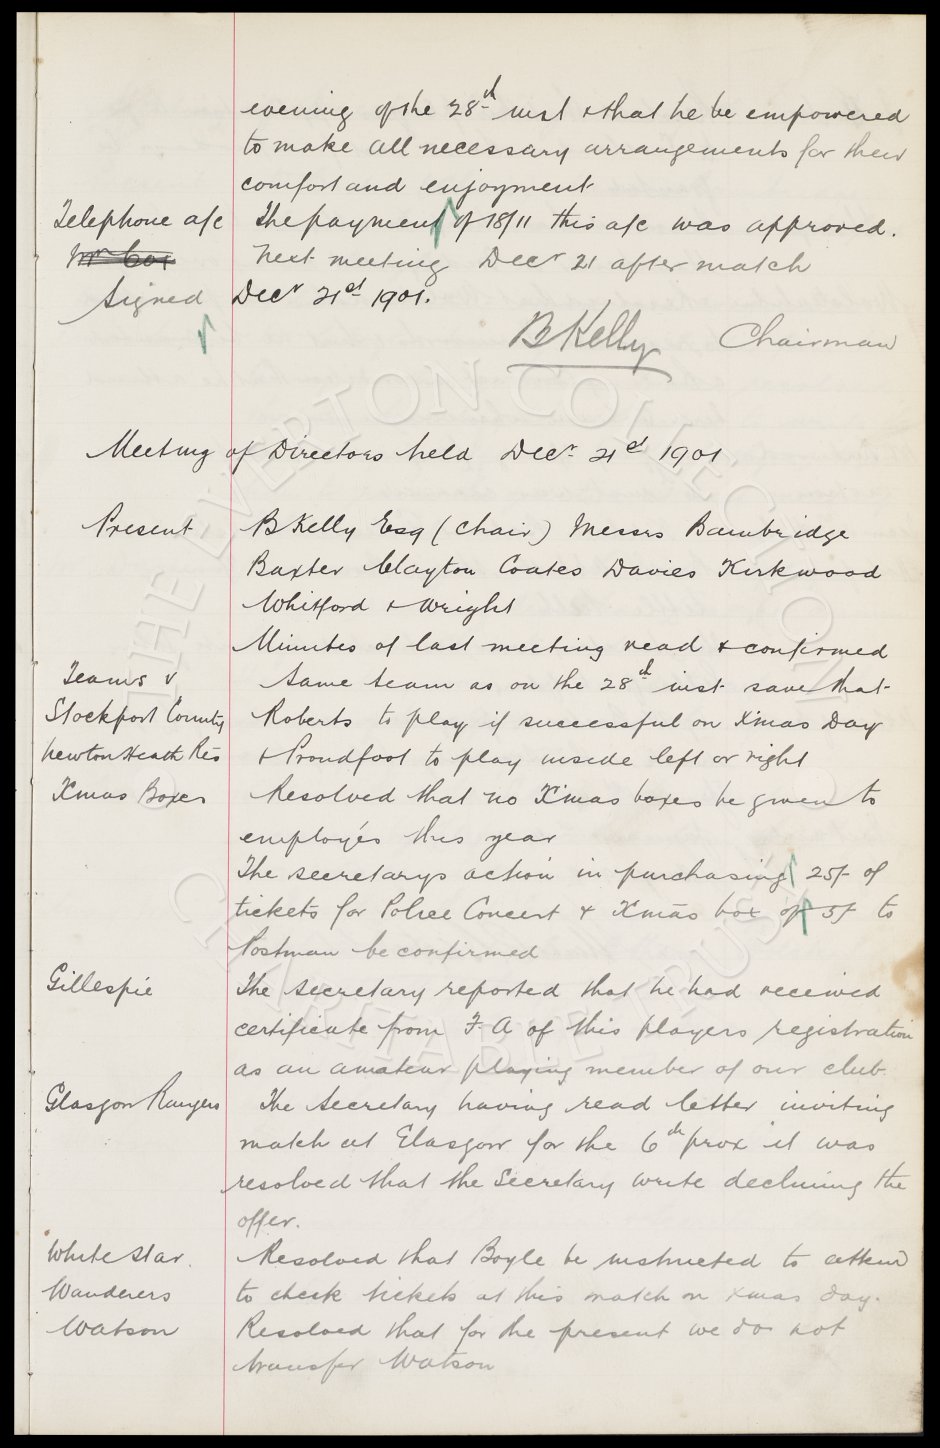 evening of the 28th inst & that he be empowered
to make all necessary arrangements for their
comfort and enjoyment
Telephone a/c The payment of 18/11 this a/c was approved.
Mr Cox Next meeting Decr 21 after match
Signed Decr 21st 1901.
B Kelly Chairman
Meeting of Directors held Decr 21st 1901
Present B Kelly Esq (Chair) Messrs Bainbridge
Baxter Clayton Coates Davies Kirkwood
Whitford & Wright
Minutes of last meeting read & confirmed
Teams v Same team as on the 28th inst save that
Stockport County Roberts to play if successful on Xmas Day
Newton Heath Res & Proudfoot to play inside left or right
Xmas Boxes Resolved that no Xmas boxes be given to
employés this year
The secretarys action in purchasing 25/- of
tickets for Police Concert & Xmas box of 5/- to
Postman be confirmed
Gillespie The Secretary reported that he had received
certificate from F.A of this players registration
as an amateur playing member of our club.
Glasgow Rangers The Secretary having read letter inviting
match at Glasgow for the 6th prox it was
resolved that the Secretary write declining the
offer.
White Star Resolved that Boyle be instructed to attend
Wanderers to check tickets at this match on xmas day.
Watson Resolved that for the present we do not
transfer Watson
THE EVERTON COLLECTION
CHARITABLE TRUST